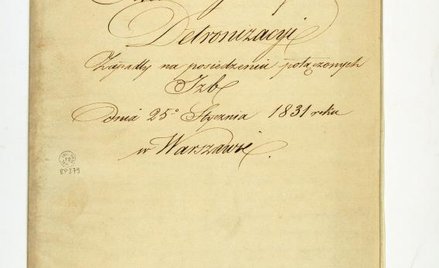 Detronizacyi
Zapadły na posiedzeniu połączonych
Izb
dnia 25º Stycznia 1831 roku
w Warszawie.
BP 379